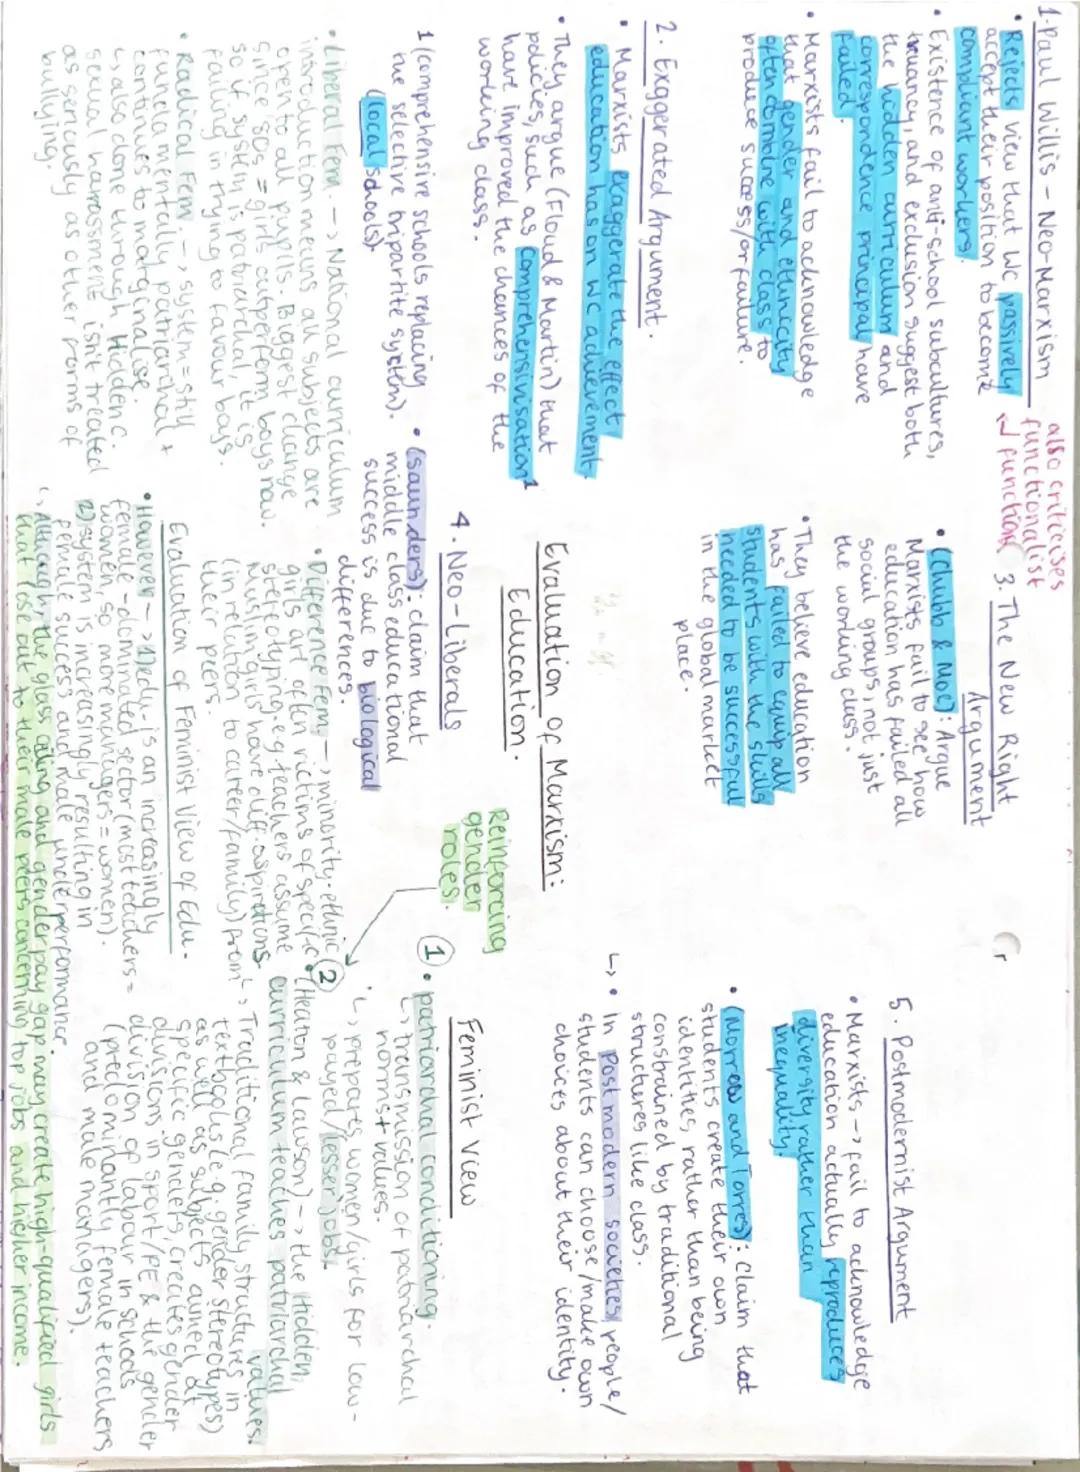 1. Paul Willis - Neo-Marxism
also criticises
functionalist
↲ functions
• Rejects view that WC passively
accept their position to become
compliant workers.
• Existence of anti-school subcultures,
truancy, and exclusion suggest both
the hidden curriculum and
correspondence principal have
failed.
• Marxists fail to acknowledge
that gender and ethnicity
often combine with class to
produce success/or failure.
2. Exaggerated Argument.
• Marxists exaggerate the effect
education has on WC achievement.
• They argue (Floud & Martin) that
policies, such as comprehensivisation¹
have improved the chances of the
working class.
1 (comprehensive schools replacing
the selective tripartite system).
(local schools).
3. The New Right
Argument
• (Chubb & Moe): Argue
Marxists fail to see how
education has failed all
social groups, not just
the working class.
• They believe education
has failed to equip all
students with the skills
needed to be successful
in the global market
place.
Evaluation of Marxism:
Education.
4. Neo-Liberals
• (Saunders): claim that
middle class educational
success is due to biological
differences.
5. Postmodernist Argument
• Marxists -> fail to acknowledge
education actually reproduces
diversity rather than
inequality.
• (Morrow and Torres): Claim that
students create their own
identities, rather than being
constrained by traditional
structures like class.
↳ • In Postmodern societies, people/
students can choose/make own
choices about their identity.
Feminist View
Reinforcing
gender
roles.
① • patriarchal conditioning.
↳ transmission of patriarchal
norms + values.
↳ prepares women/girls for low-
payed/lesser jobs.
② • (Heaton & Lawson) -> the Hidden
curriculum teaches patriarchal
values.
↳ Traditional family structures in
textbooks (e.g. gender stereotypes)
as well as subjects aimed at
specific genders, creates gender
divisions in sport/PE & the gender
division of labour in schools
(predominantly female teachers
and male managers).
• Liberal Fem. -> National curriculum
introduction means all subjects are
open to all pupils. Biggest change
since 50s = girls outperform boys now.
so if system is patriarchal, it is
failing in trying to favour boys.
• Radical Fem. -> system = still
fundamentally patriarchal +
continues to marginalise.
↳ also done through Hidden C.
sexual harrassment isn't treated
as seriously as other forms of
bullying.
• Difference Fem. -> minority-ethnic
girls are often victims of specific
stereotyping. eg teachers assume
Muslim girls have diff. aspirations
(in relation to career/family) from
their peers.
Evaluation of Feminist View of Edu.
• However -> 1) edu. is an increasingly
female-dominated sector (most teachers =
women, so more managers = women).
2) system is increasingly resulting in
female success and male underperformance.
↳ Although the glass ceiling and gender pay gap may create high-qualified girls
that lose out to their male peers concerning top jobs and higher income.